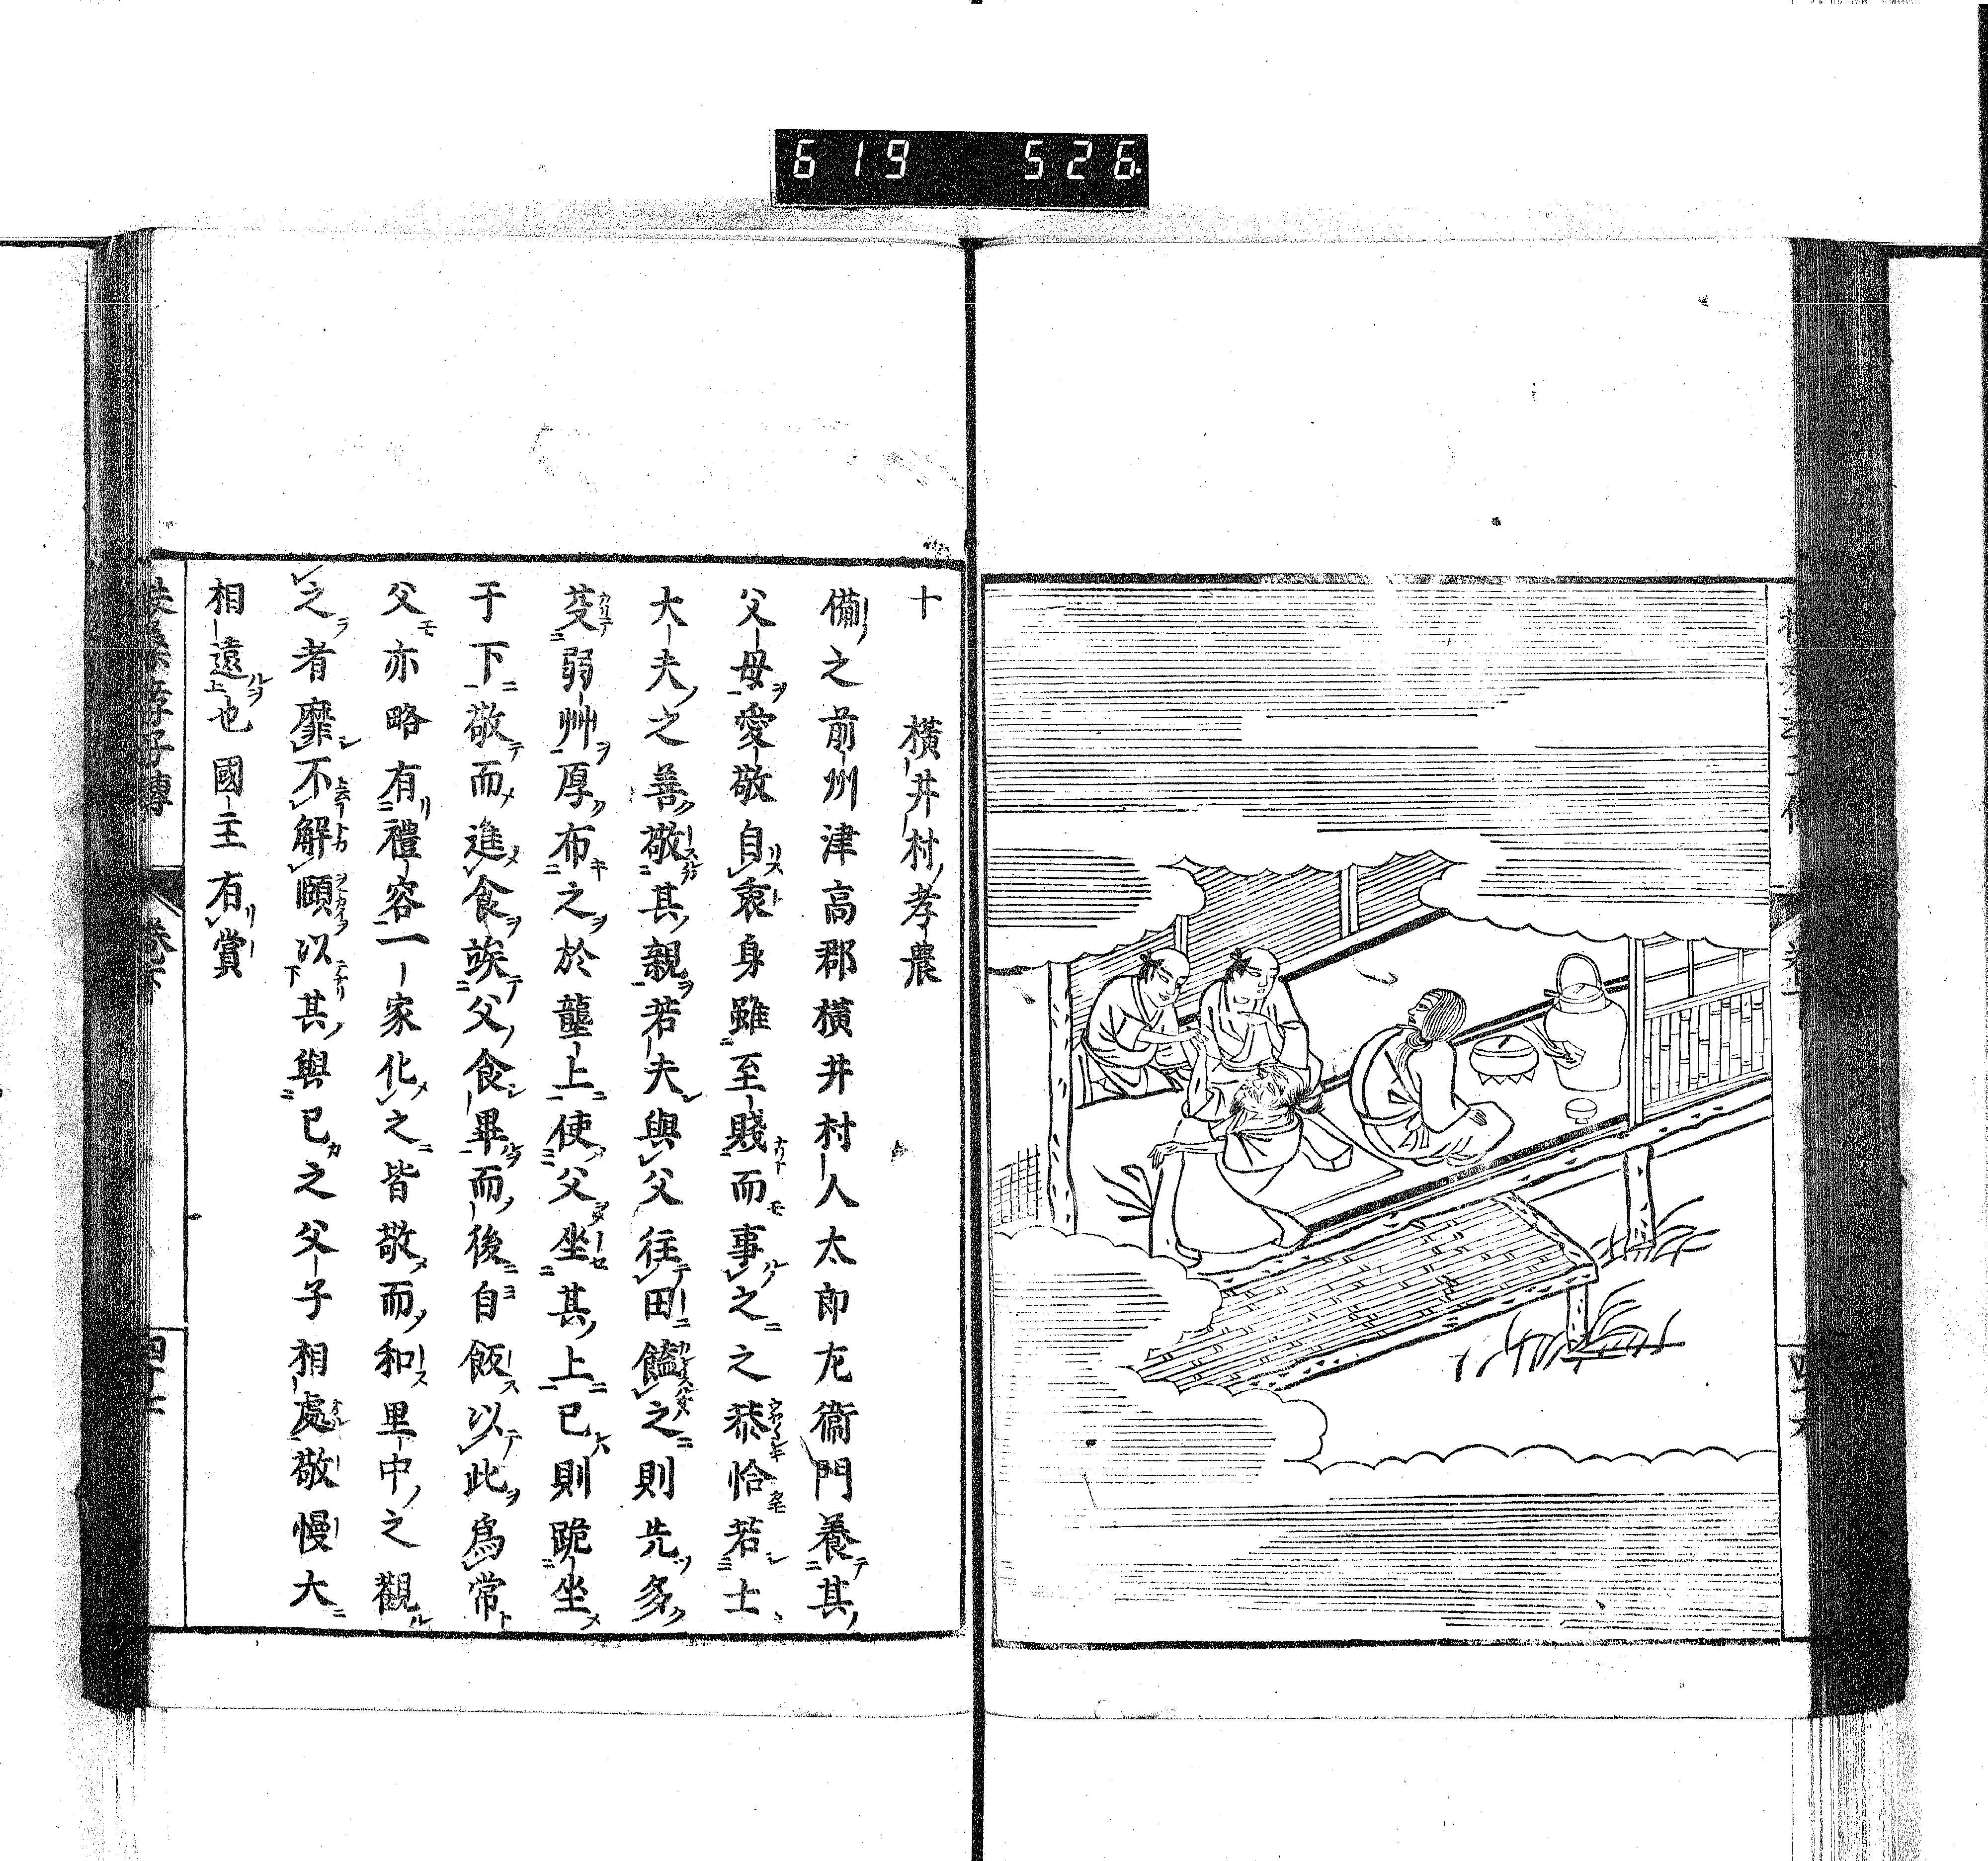 619 526
十 橫井村孝農
備之前州津高郡橫井村人太郎左衞門養其
父母愛敬自衷身雖至賤而事之之恭恰若士
大夫之善敬其親若夫與父往田饁之則先多
芟弱艸厚布之於壟上使父坐其上己則跪坐
于下敬而進食竢父食畢而後自飯以此爲常
父亦略有禮容一家化之皆敬而和里中之觀
之者靡不解頤以其與己之父子相處敬慢大
相遠也國主有賞